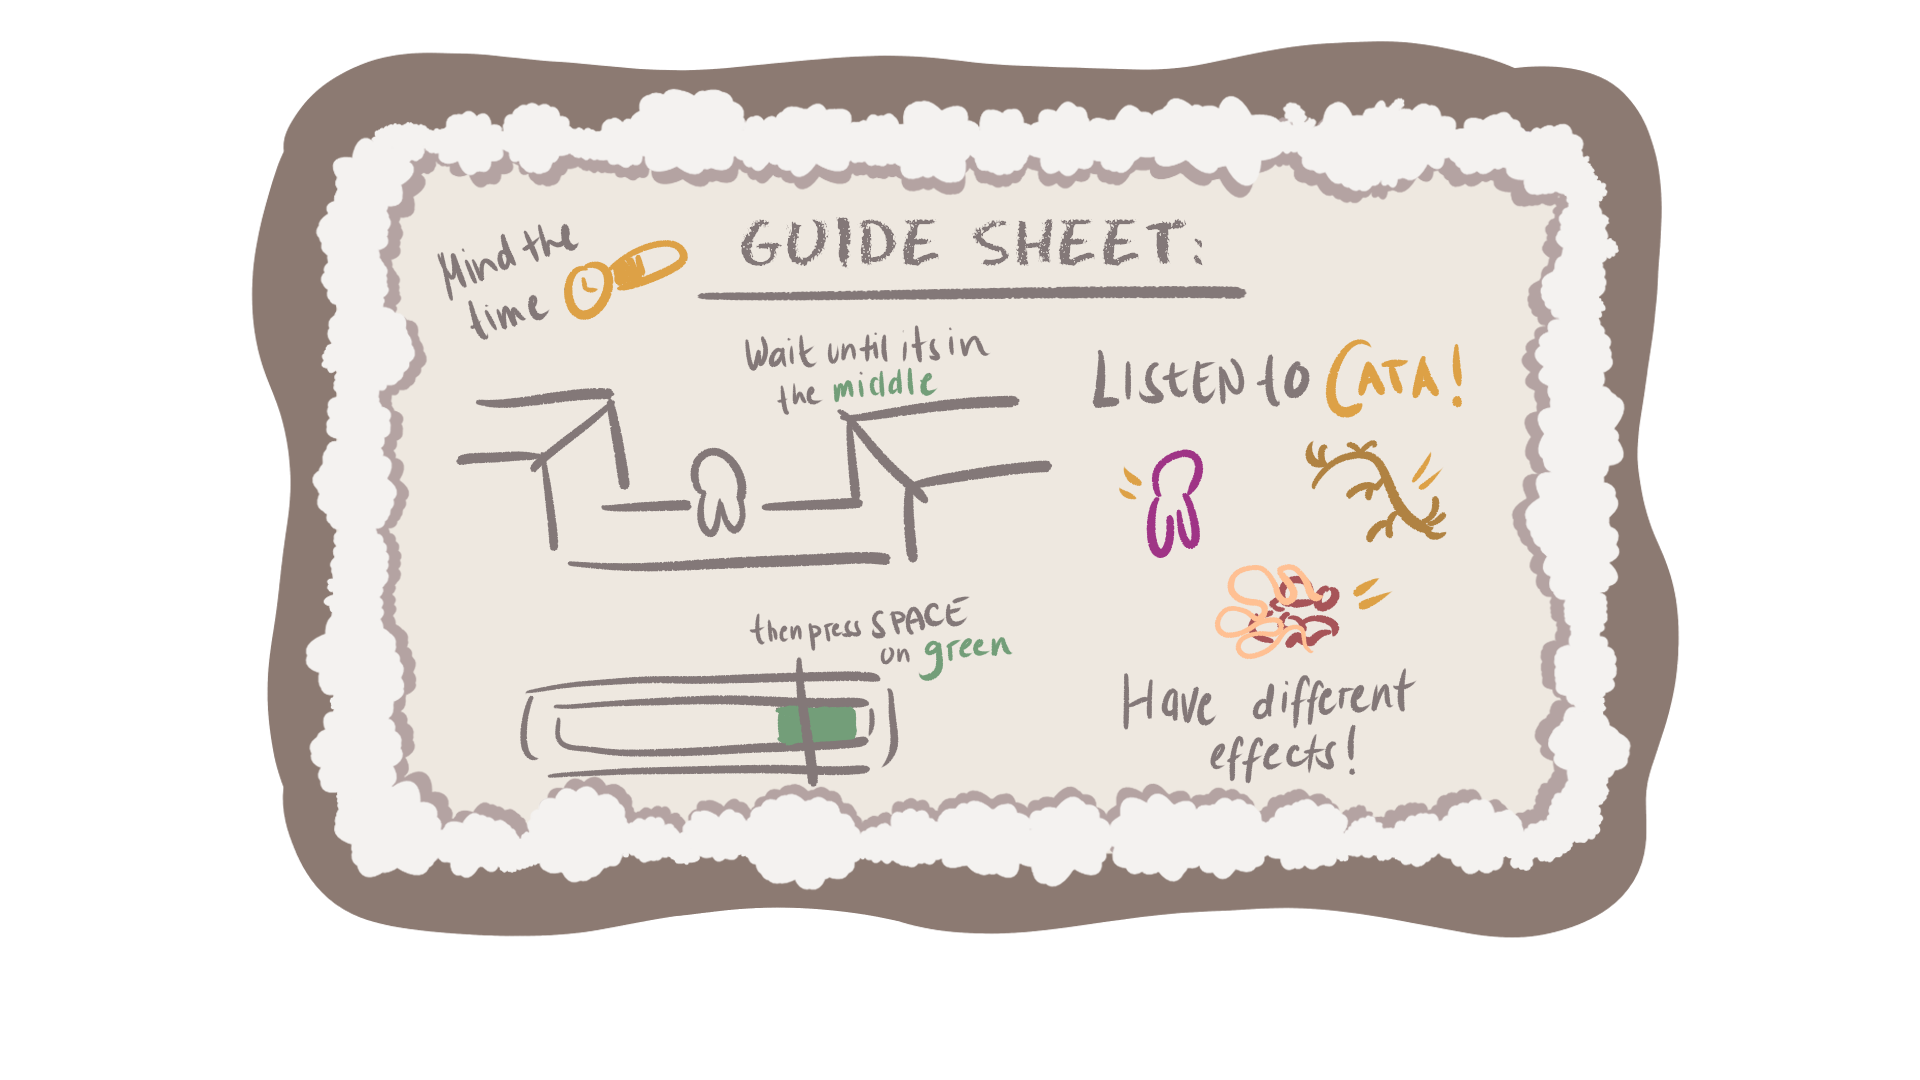 GUIDE SHEET:
Mind the
time
Wait until its in
the middle
then press SPACE
on green
LISTEN to CATA!
Have different
effects!